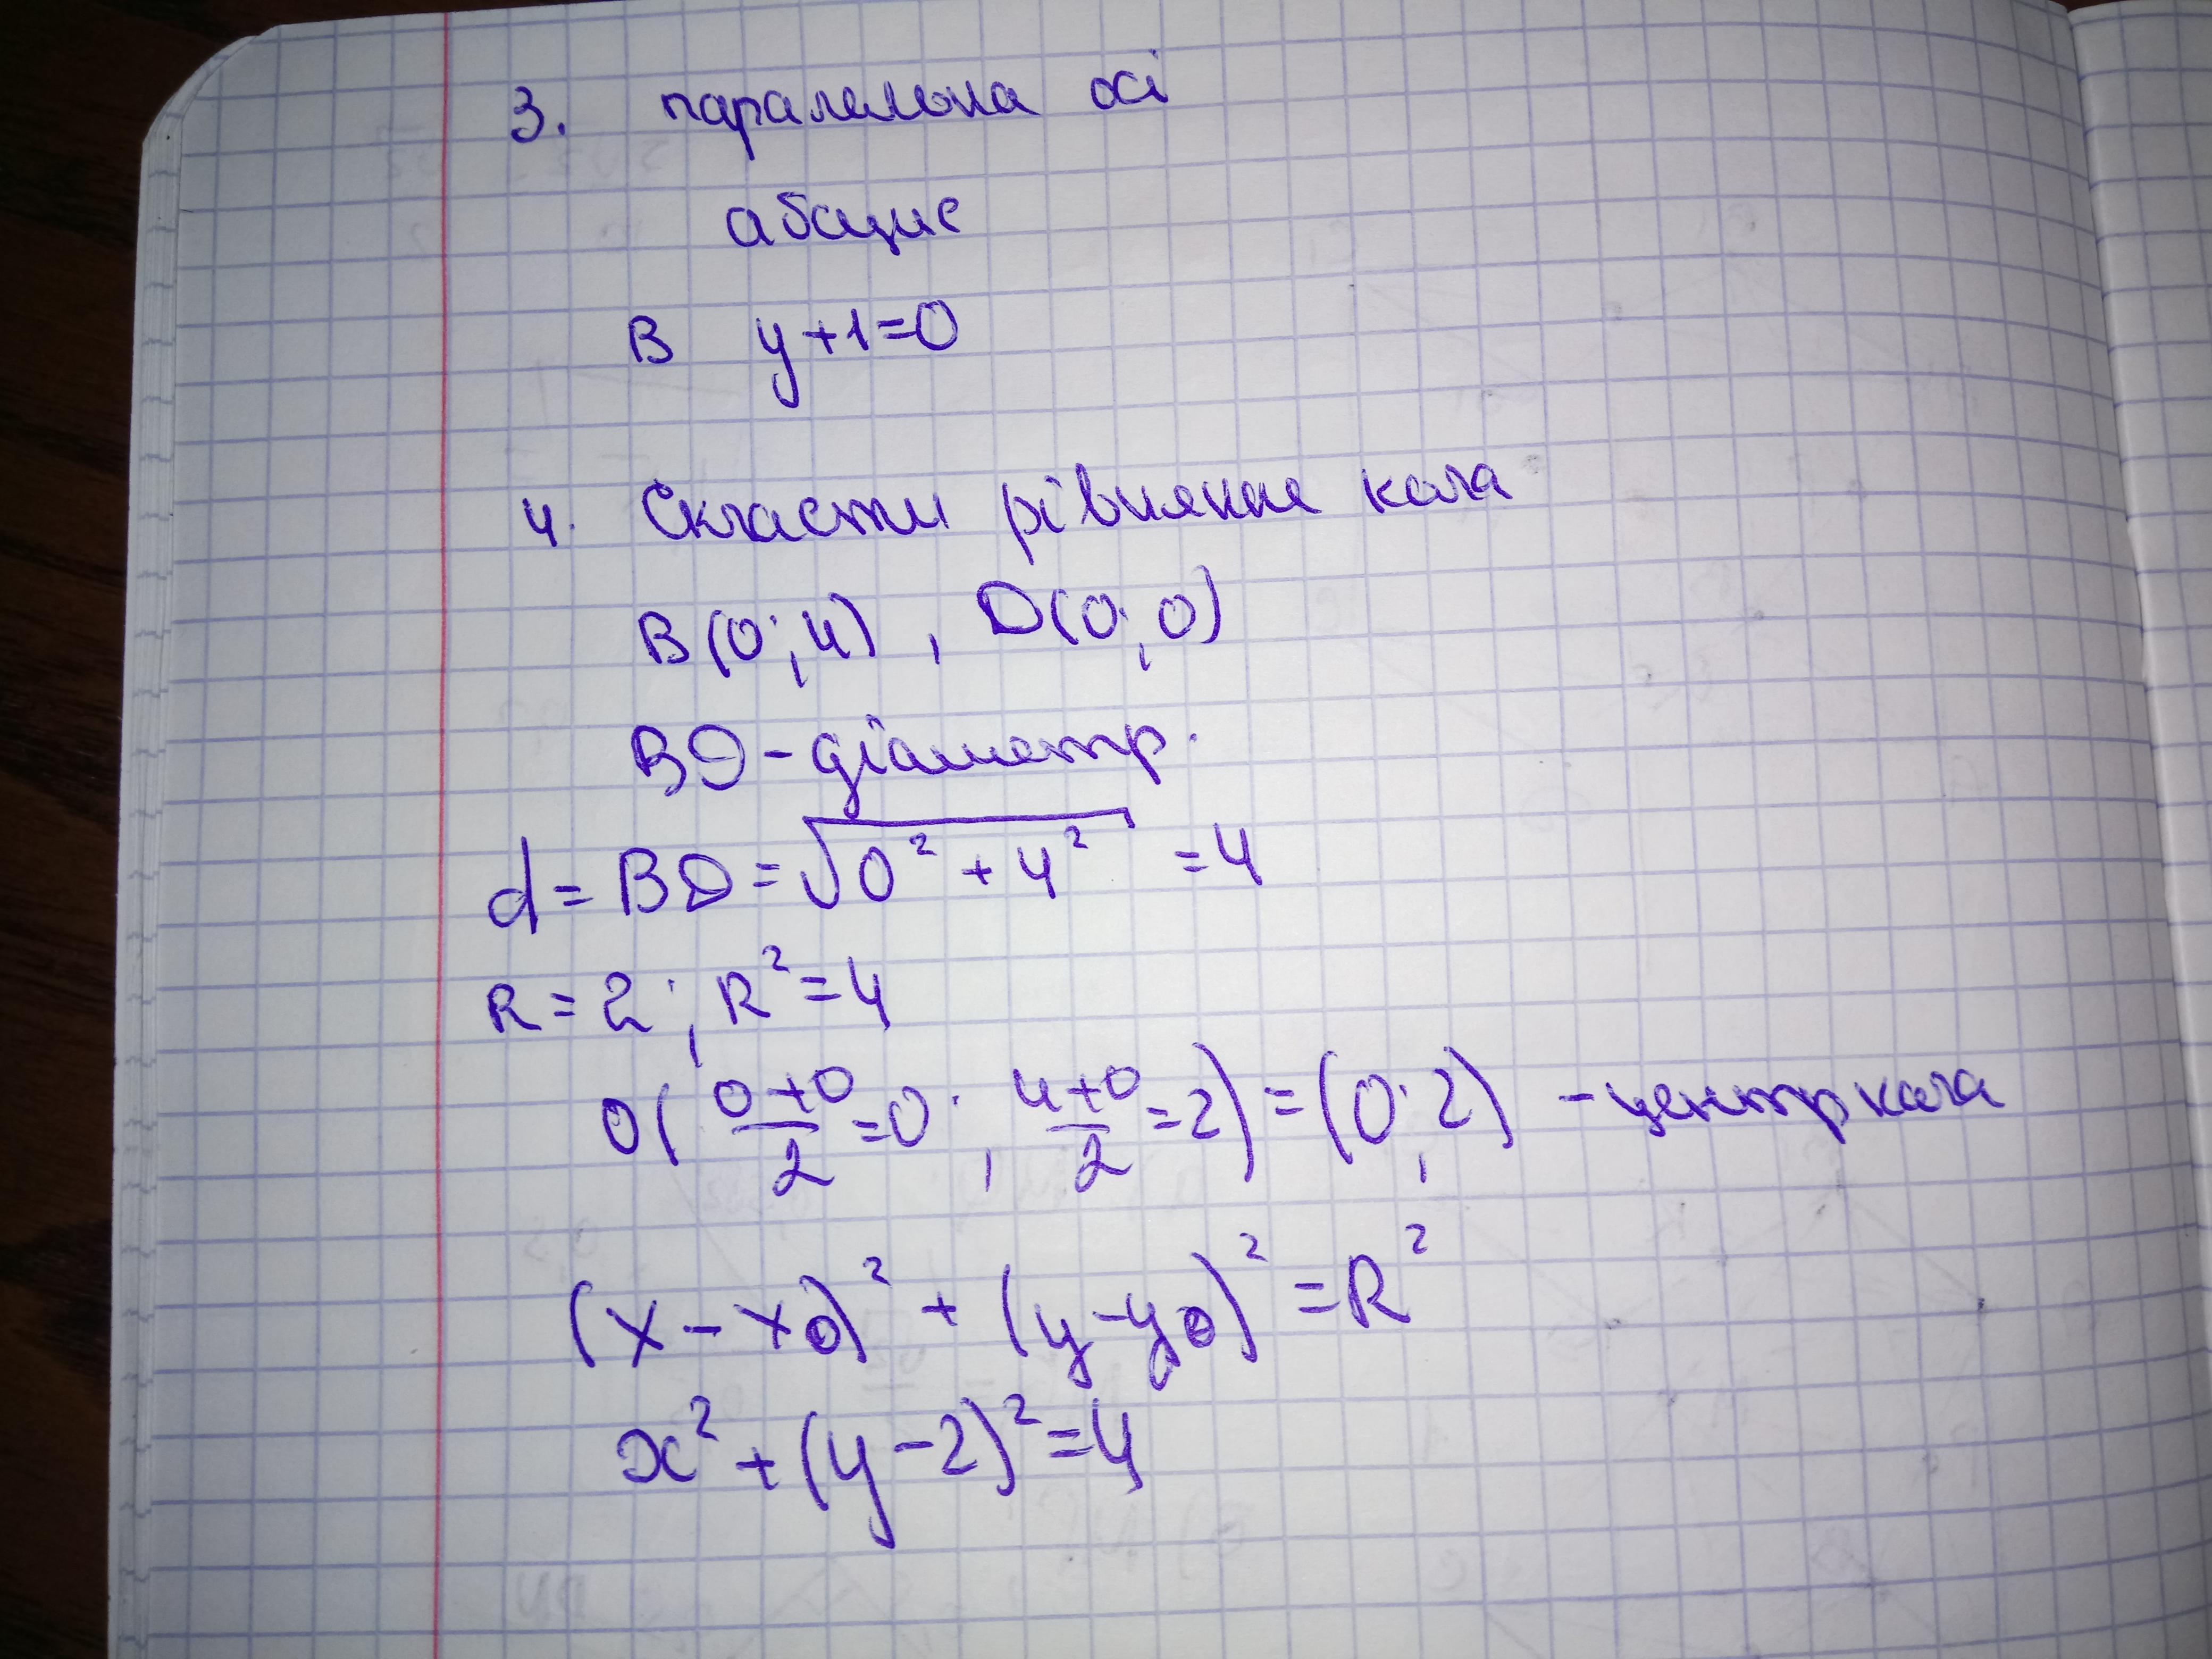 3. паралельна осі
абсцис
В y+1=0
4. Скласти рівняння кола
B(0;4), D(0;0)
BD-діаметр.
d=BD=√0²+4² =4
R=2; R²=4
O(0+0/2=0; 4+0/2=2)=(0;2) -центр кола
(x-x0)²+(y-y0)²=R²
x²+(y-2)²=4